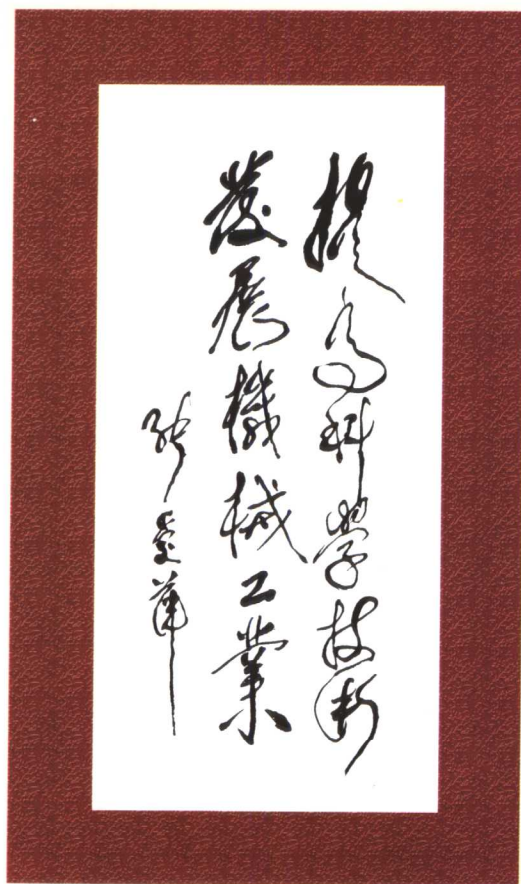 提高科學技術
發展機械工業
張愛萍